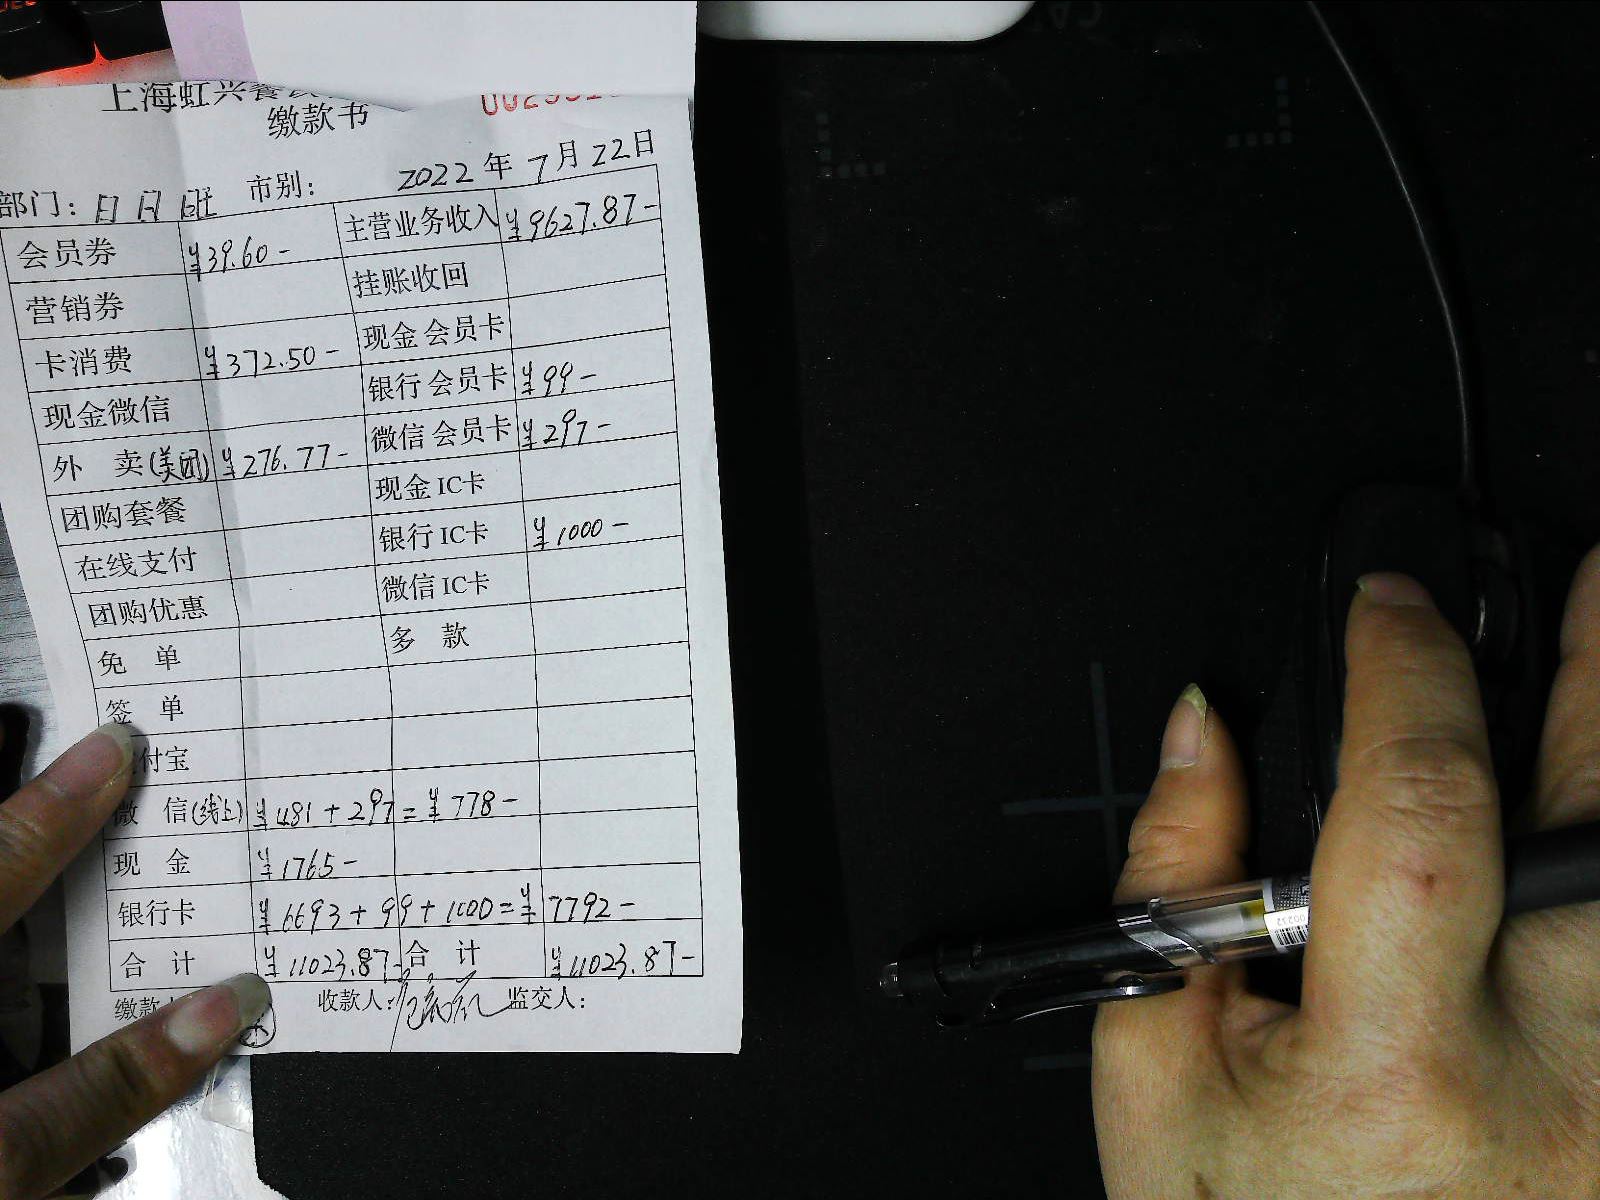 上海虹兴餐饮
缴款书
部门：日月班 市别： 2022年7月22日
会员券 ¥39.60- 主营业务收入 ¥9627.87-
营销券 挂账收回
卡消费 ¥372.50- 现金会员卡
现金微信 银行会员卡 ¥99-
外 卖(美团) ¥276.77- 微信会员卡 ¥297-
团购套餐 现金IC卡
在线支付 银行IC卡 ¥1000-
团购优惠 微信IC卡
免 单 多 款
签 单
付宝
微 信(线上) ¥481+297=¥778-
现 金 ¥1765-
银行卡 ¥6693+99+1000=¥7792-
合 计 ¥11023.87- 合 计 ¥11023.87-
缴款 收款人： 监交人：